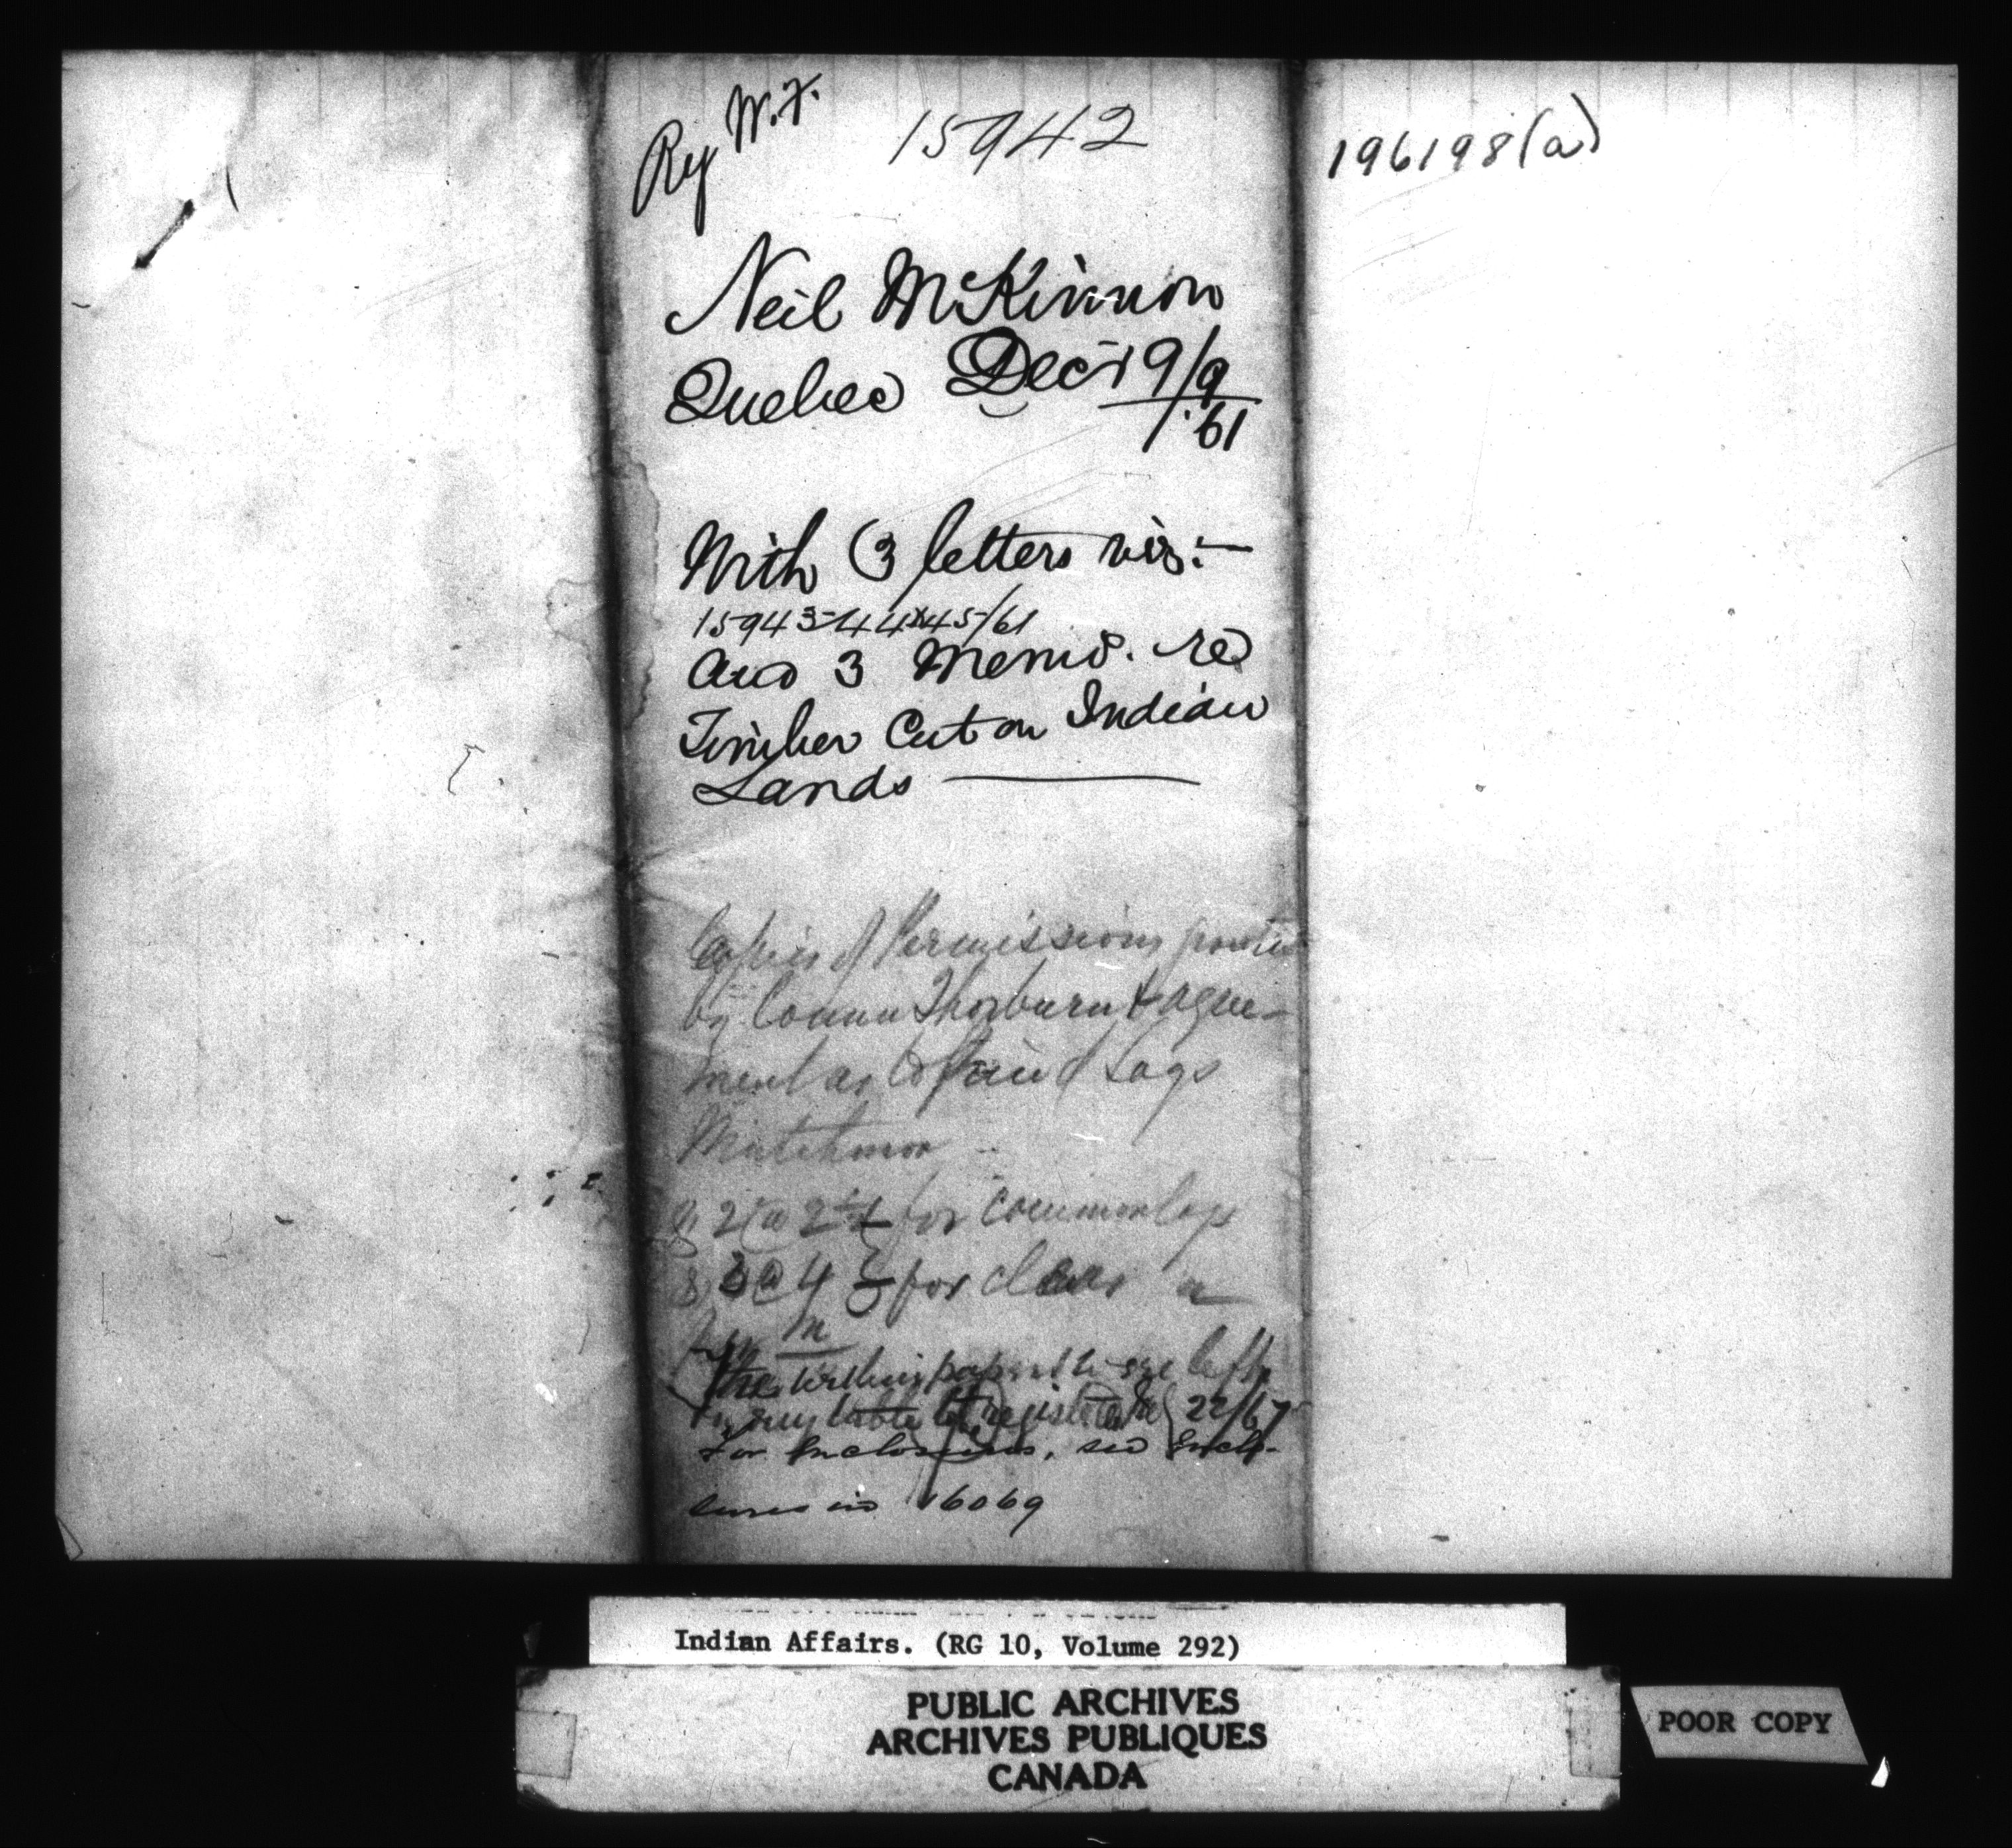 Reg W.F.
15942
196198(a)
Neil McKinnon
Quebec Dec 19/9
/61
With (3 letters viz:—
15943-44&45/61
And 3 Memo. re
Timber Cut on Indian
Lands
Copies of Permissions granted
by Comm Thorburn & agree-
ment as to price of Logs
2 @ 2½ for common logs
3 @ 4 for clear
m
The within papers
my table registered 22/67
For Inclosures, see Inclo-
sures in 16069
Indian Affairs. (RG 10, Volume 292)
PUBLIC ARCHIVES
ARCHIVES PUBLIQUES
CANADA
POOR COPY